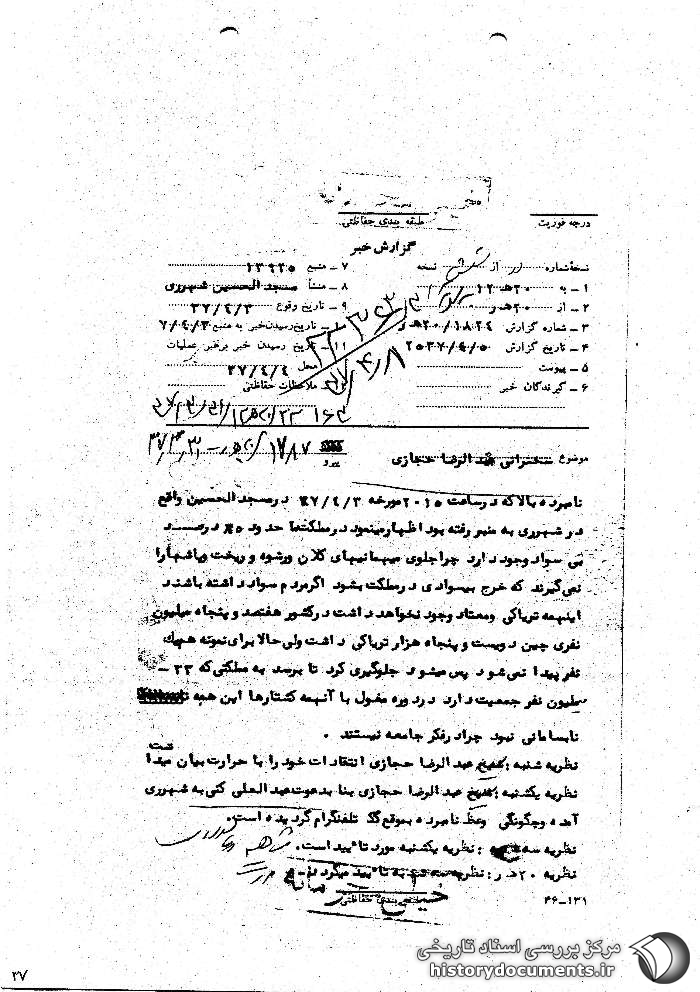 درجه فوریت
طبقه بندی حفاظتی
گزارش خبر
نسخه شماره از نسخه
۱ - به ۲۰هـ ۱۲
۲ - از ۲۰هـ ر
۳ - شماره گزارش ۲۰/۱۸۲۴هـ ر
۴ - تاریخ گزارش ۲۵۳۷/۴/۵
۵ - پیوست
۶ - گیرندگان خبر
۷ - منبع ۱۳۹۲۵
۸ - منشأ مسجد الحسین شهرری
۹ - تاریخ وقوع ۳۷/۴/۳
۱۰ - تاریخ رسیدن خبر به منبع ۳۷/۴/۳
۱۱ - تاریخ رسیدن خبر برهبر عملیات
محل ۳۷/۴/۴
ملاحظات حفاظتی
موضوع سخنرانی عبدالرضا حجازی
پیرو ۱۷۸۷
نامبرده بالا که در ساعت ۲۰۱۵ مورخه ۳۷/۴/۳ در مسجد الحسین واقع
در شهرری به منبر رفته بود اظهار مینمود در مملکت ما حدود ۶۵ درصد
بی سواد وجود دارد چرا جلوی میهمانیهای کلان ورشوه و ریخت وپاشها را
نمی گیرند که خرج بیسوادی در مملکت بشود اگر مردم سواد داشته باشند
اینهمه تریاکی ومعتاد وجود نخواهد داشت در کشور هفتصد و پنجاه میلیون
نفری چین دویست و پنجاه هزار تریاکی داشت ولی حالا برای نمونه هم یک
نفر پیدا نمی شود پس میشود جلوگیری کرد تا برسد به مملکتی که ۳۳ -
میلیون نفر جمعیت دارد در دوره مغول با آنهمه کشتارها این همه
نابسامانی نبود چرا در فکر جامعه نیستند .
نظریه شنبه : شیخ عبدالرضا حجازی انتقادات خود را با حرارت بیان میدا شت
نظریه یکشنبه : شیخ عبدالرضا حجازی بنا بدعوت عبدالعلی کنی به شهرری
آمده وچگونگی وعظ نامبرده بموقع تلفنگرام گردیده است.
نظریه سه شنبه : نظریه یکشنبه مورد تائید است.
نظریه ۲۰هـ ر : نظریه سه شنبه تائید میگردد
طبقه بندی حفاظتی
۴۶-۱۳۱
۲۷
مرکز بررسی اسناد تاریخی
historydocuments.ir